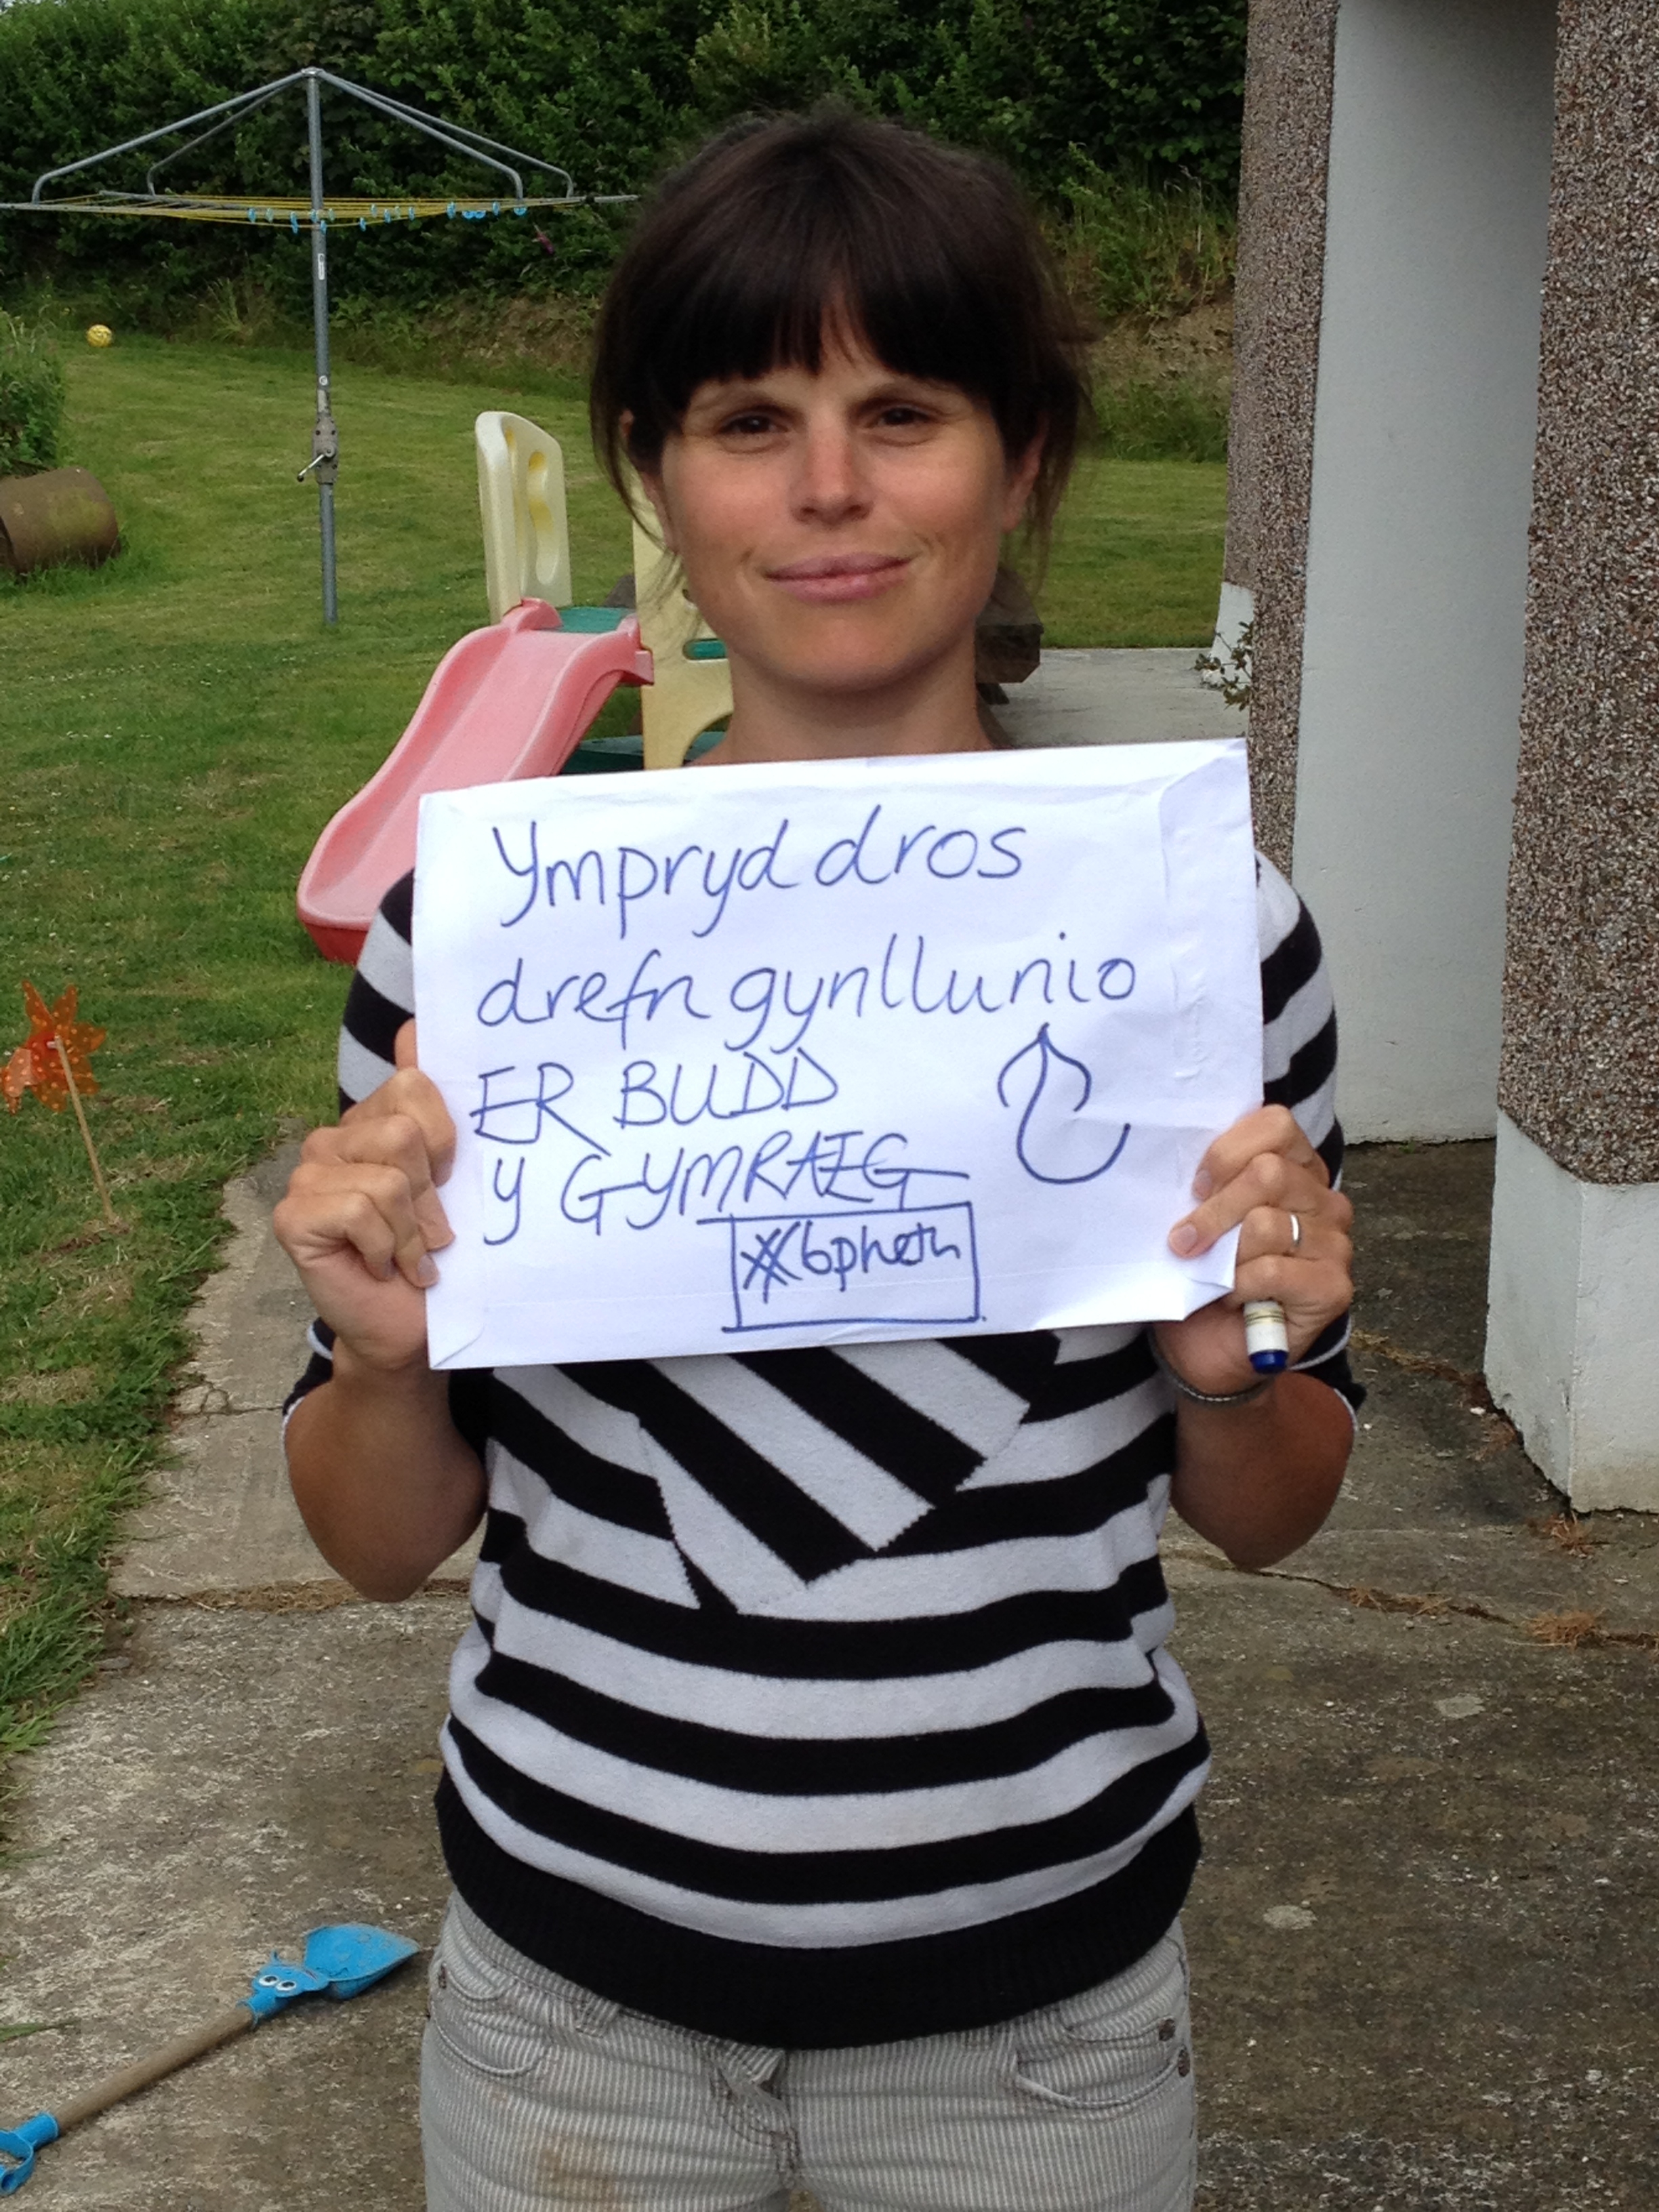 Ympryd dros
drefn gynllunio
ER BUDD
Y GYMRAEG
#6pheth